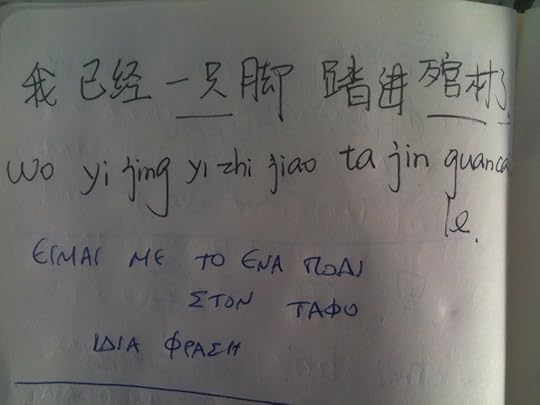 我已经一只脚踏进棺材了.
wo yi jing yi zhi jiao ta jin guancai
le.
ΕΙΜΑΙ ΜΕ ΤΟ ΕΝΑ ΠΟΔΙ
ΣΤΟΝ ΤΑΦΟ
ΙΔΙΑ ΦΡΑΣΗ